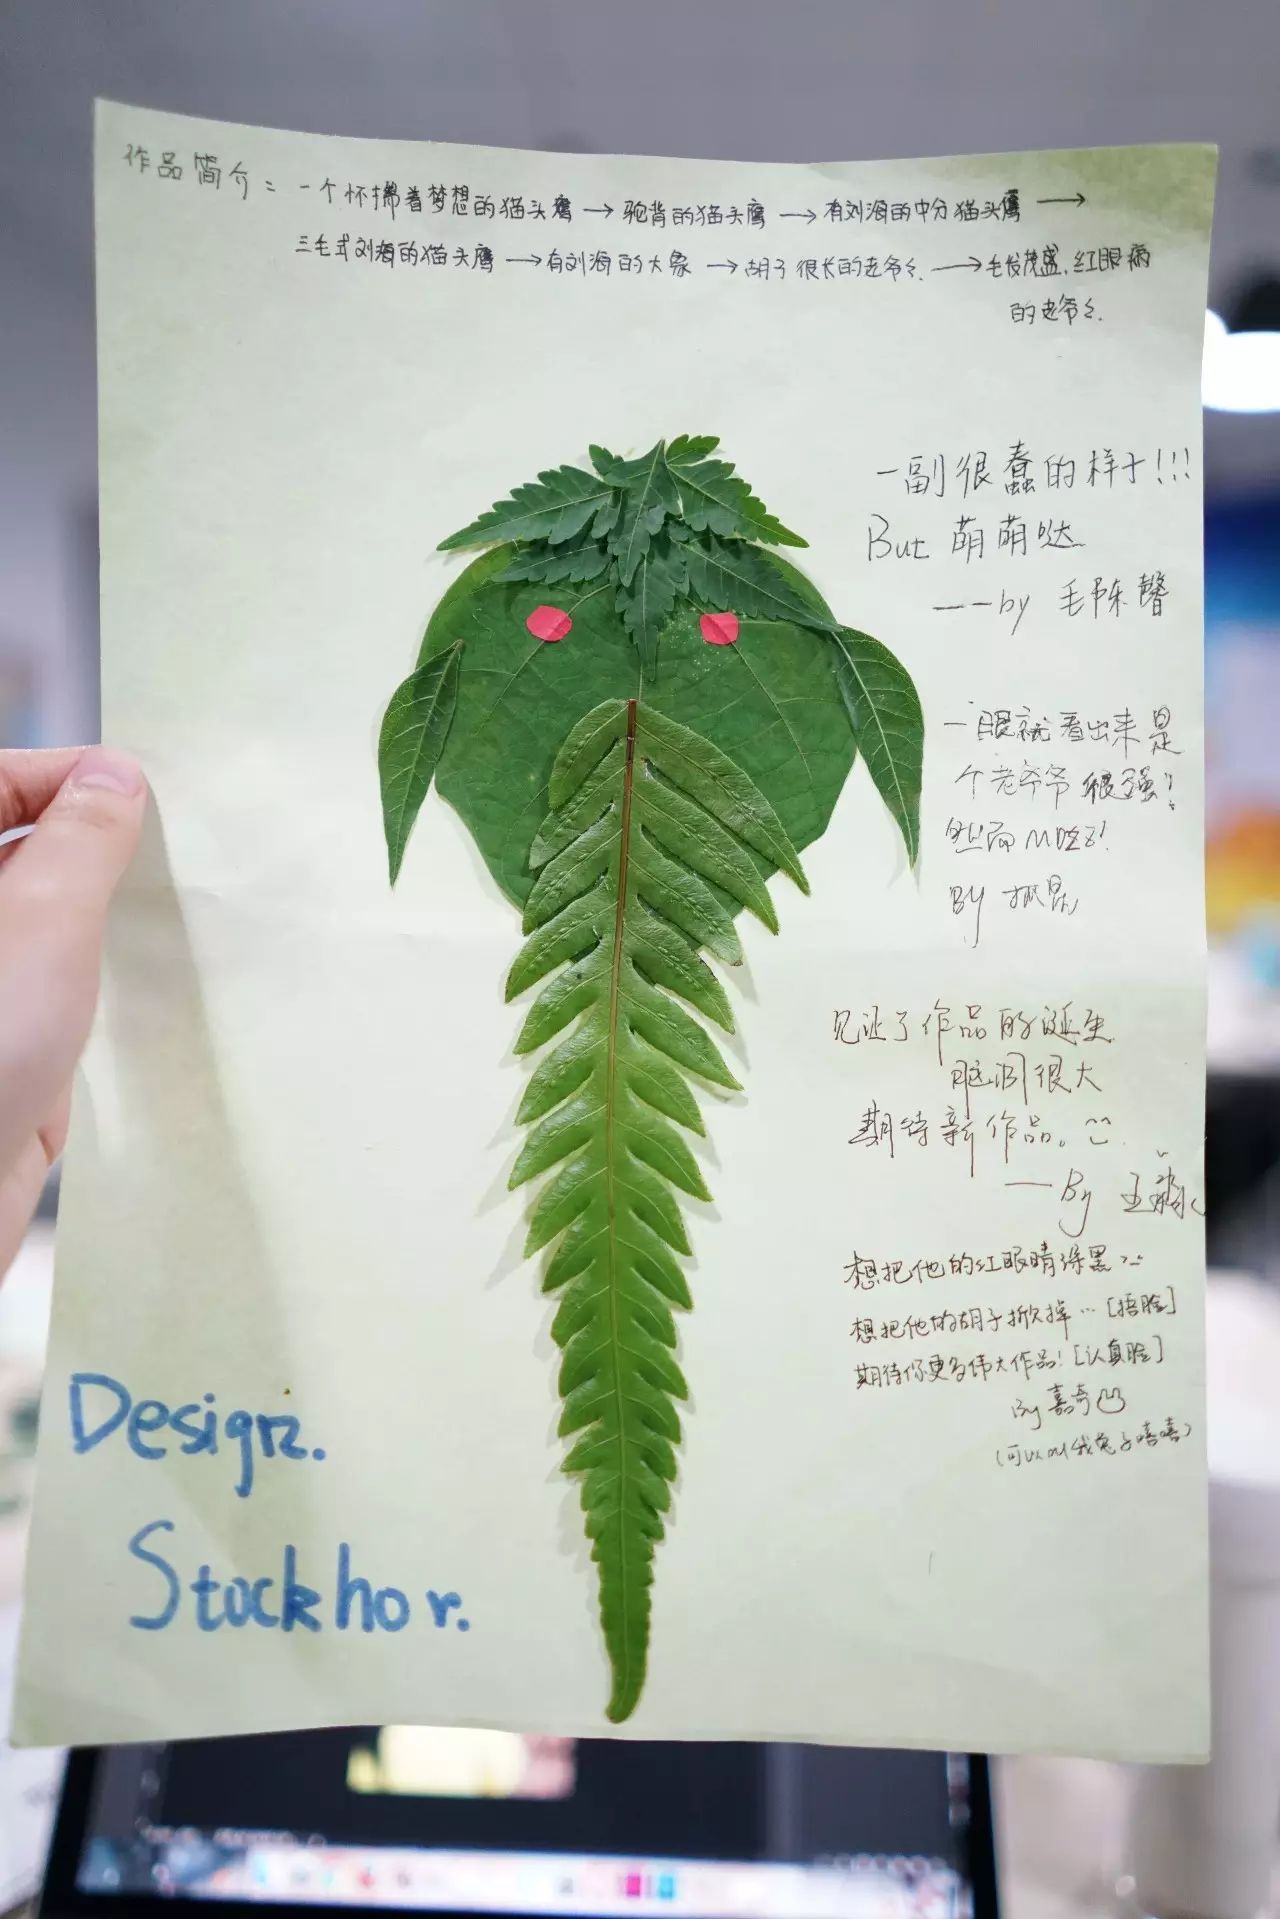 作品简介：一个怀揣着梦想的猫头鹰→驼背的猫头鹰→有刘海的中分猫头鹰→
三毛式刘海的猫头鹰→有刘海的大象→胡子很长的老爷爷.→毛发茂盛,红眼病
的老爷爷.
一副很蠢的样子!!!
But 萌萌哒
——by 毛陈馨
一眼就看出来是
个老爷爷 很强!
然而
BY
见证了作品的诞生
脑洞很大
期待新作品。
—By 王
想把他的红眼睛涂黑
想把他的胡子掀掉…[捂脸]
期待你更多伟大作品![认真脸]
By 嘉奇
(可以叫我兔子嘻嘻)
Design.
Stockhor.